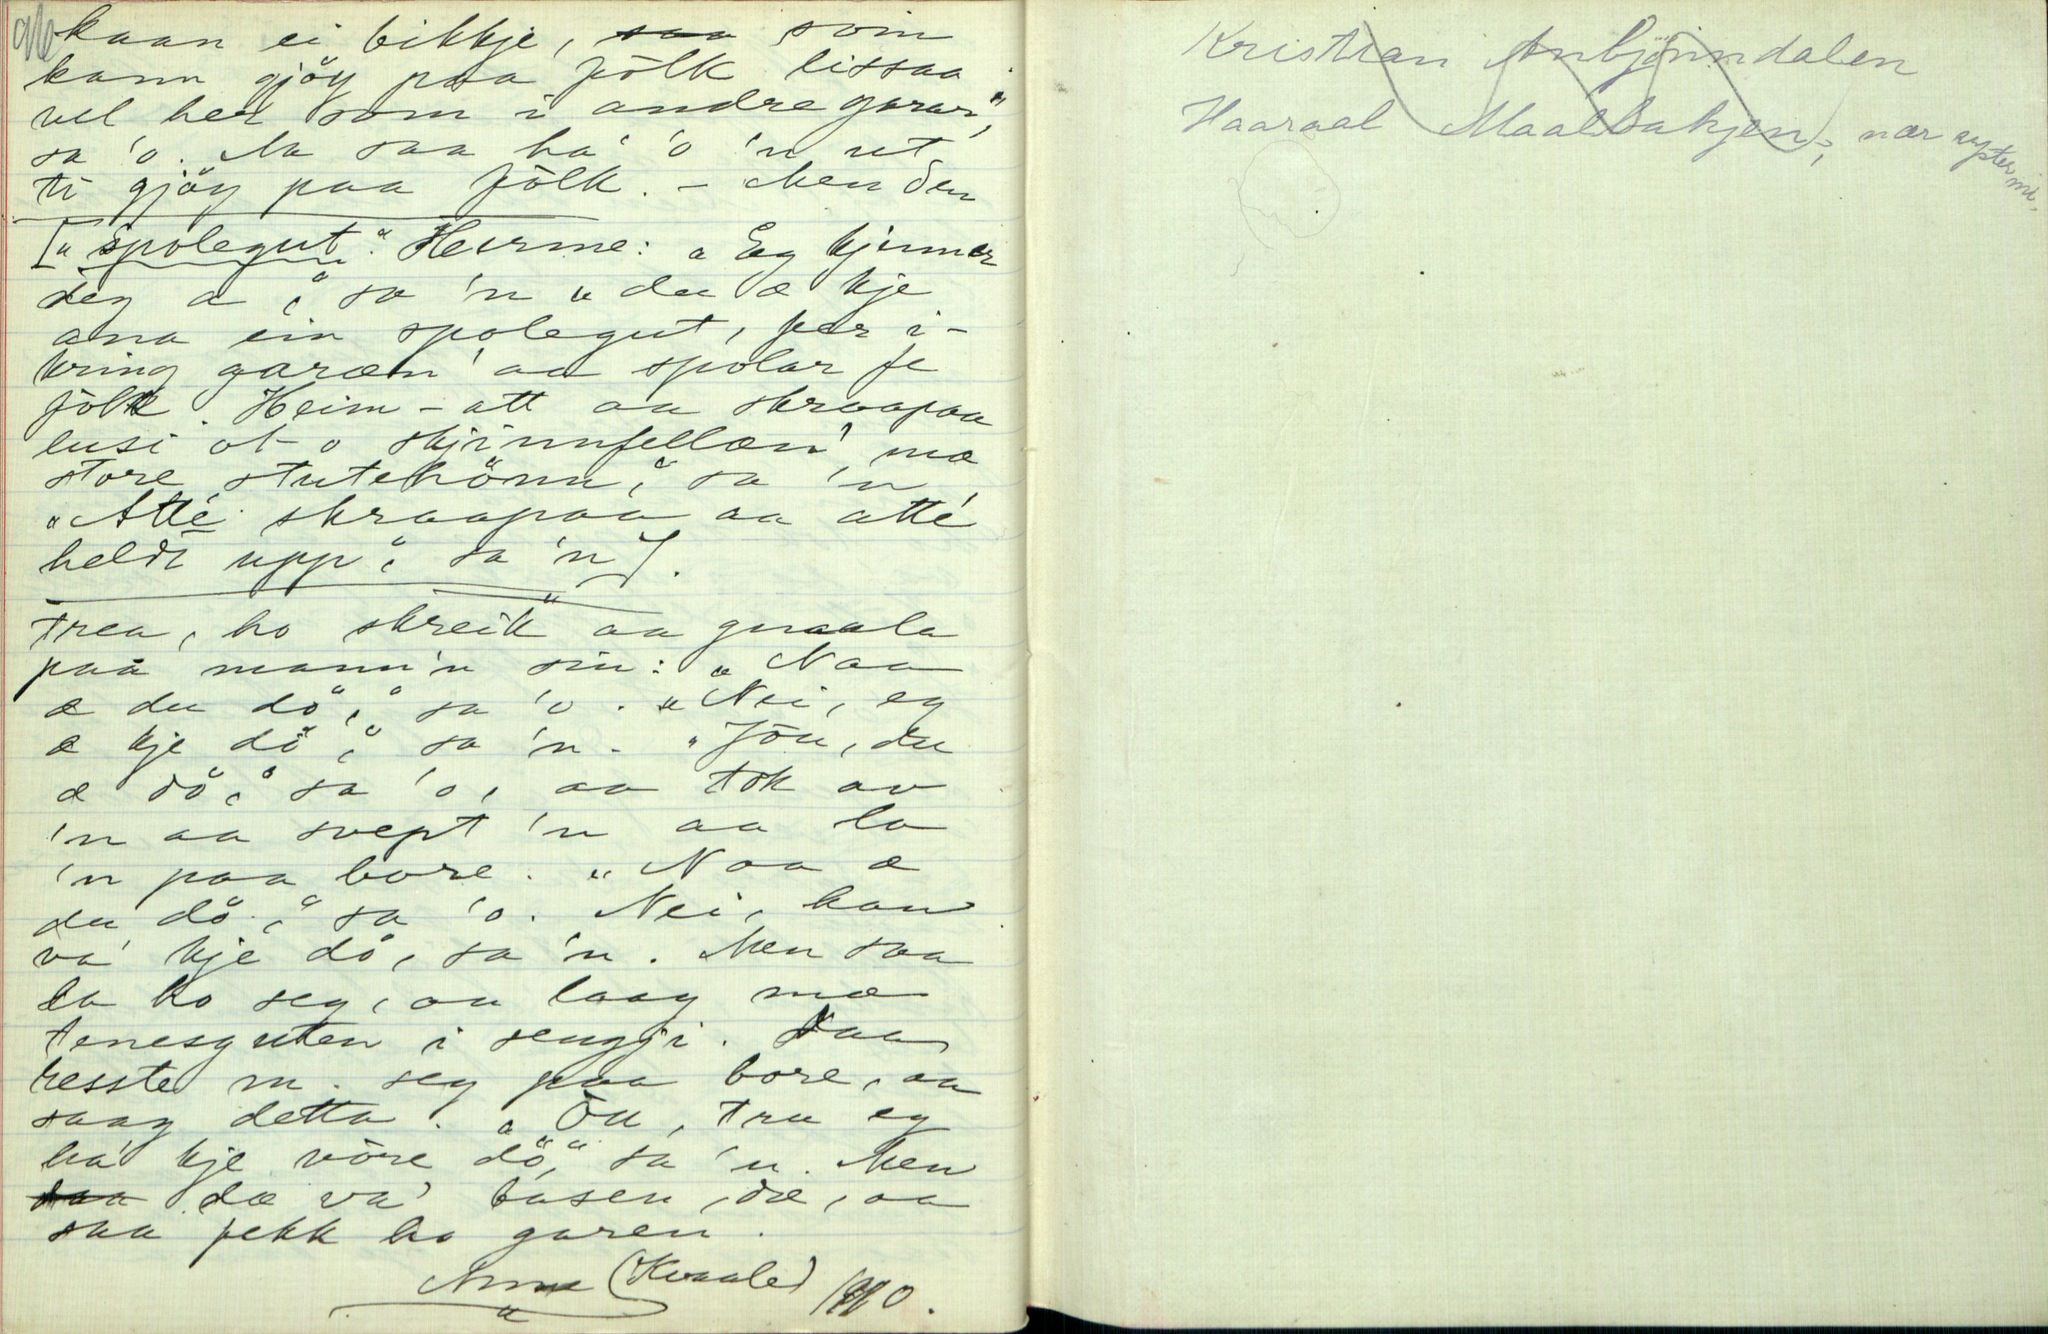 96
kaan ei bikkje, saa som
kann gjöy paa fôlk lissaa
vel her som i andre garar",
sa 'o. Aa saa ha' 'o 'n ut
ti gjöy paa fôlk. - Men den
[„Spolegut." Herme: „Eg kjenner
deg a," sa 'n „du æ kje
ana ein spolegut, fer i-
kring garæn' aa spolar fe
fôlk. Heim-att aa skraapaa
lusi ot o skjinnfellæn' mæ
store stutehönn," sa 'n,
„Atté skraapaa aa atté
heldt upp," sa 'n].
trea, ho skreik aa graala
paa mann'n sin: „Naa
æ du dö," sa 'o. „Nei, eg
æ kje dö," sa 'n. „Jôu, du
æ dö," sa 'o, aa tok av
'n aa svept 'n aa la
'n paa bore. „Naa æ
du dö," sa 'o. Nei, han
va' kje dö, sa 'n. Men saa
la ho seg, aa laag mæ
tenesguten i sengji. Daa
resste m. seg paa bore, aa
saag detta. „Ôu, tru eg
ha' kje vöre dö," sa 'n. Men
saa dæ va' busen, dæ, aa
saa fekk ho garen.
Anne (Kvaale) 1910.
Kristian Anbjönndalen
Haaraal Maalbakjen, nær